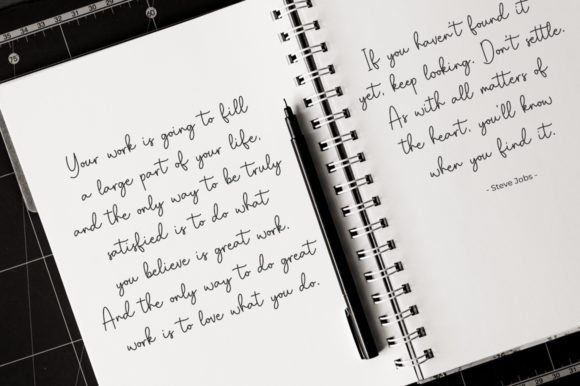 Your work is going to fill
a large part of your life,
and the only way to be truly
satisfied is to do what
you believe is great work.
And the only way to do great
work is to love what you do.
If you haven't found it
yet, keep looking. Don't settle.
As with all matters of
the heart, you'll know
when you find it.
- Steve Jobs -